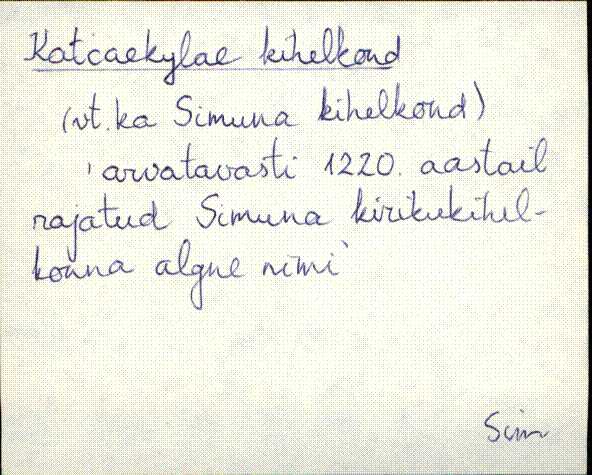 Katcaekylae kihelkond
(vt. ka Simuna kihelkond)
'arvatavasti 1220. aastail
rajatud Simuna kirikukihel-
konna algne nimi'
Sim